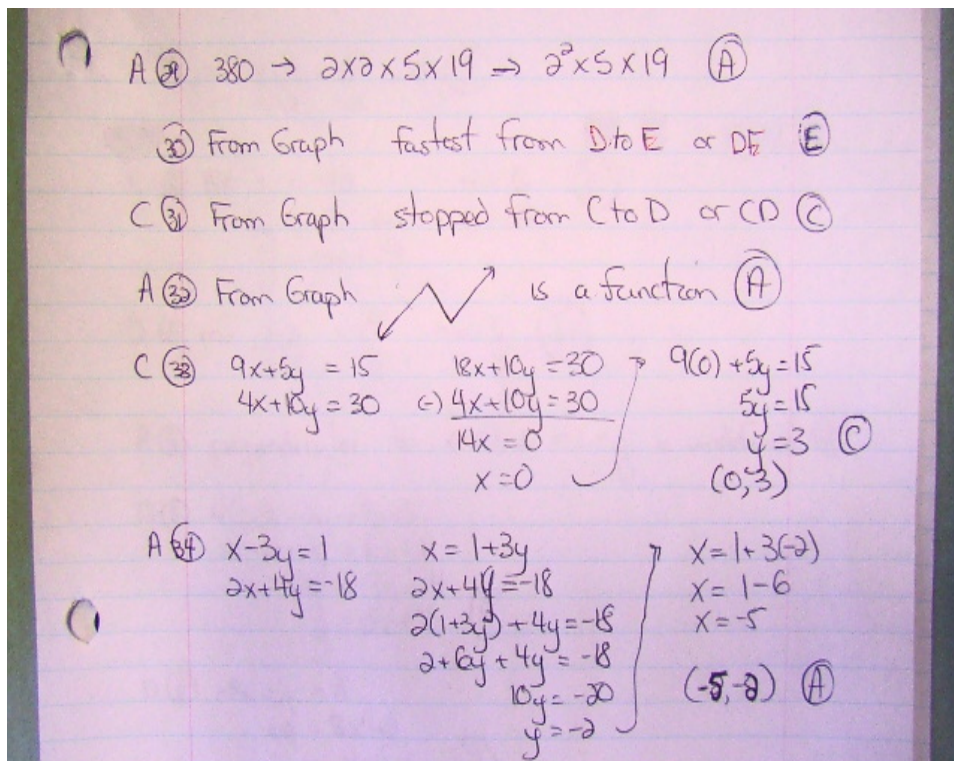 A 29 380 → 2x2x5x19 → 2²x5x19 A
30 From Graph fastest from D to E or DE E
C 31 From Graph stopped from C to D or CD C
A 32 From Graph is a function A
C 33 9x+5y = 15
4x+10y = 30
18x+10y = 30
(-) 4x+10y = 30
14x = 0
x = 0
9(0) + 5y = 15
5y = 15
y = 3 C
(0,3)
A 34 x-3y = 1
2x+4y = -18
x = 1+3y
2x+4y = -18
2(1+3y) + 4y = -18
2+6y + 4y = -18
10y = -20
y = -2
x = 1+3(-2)
x = 1-6
x = -5
(-5,-2) A